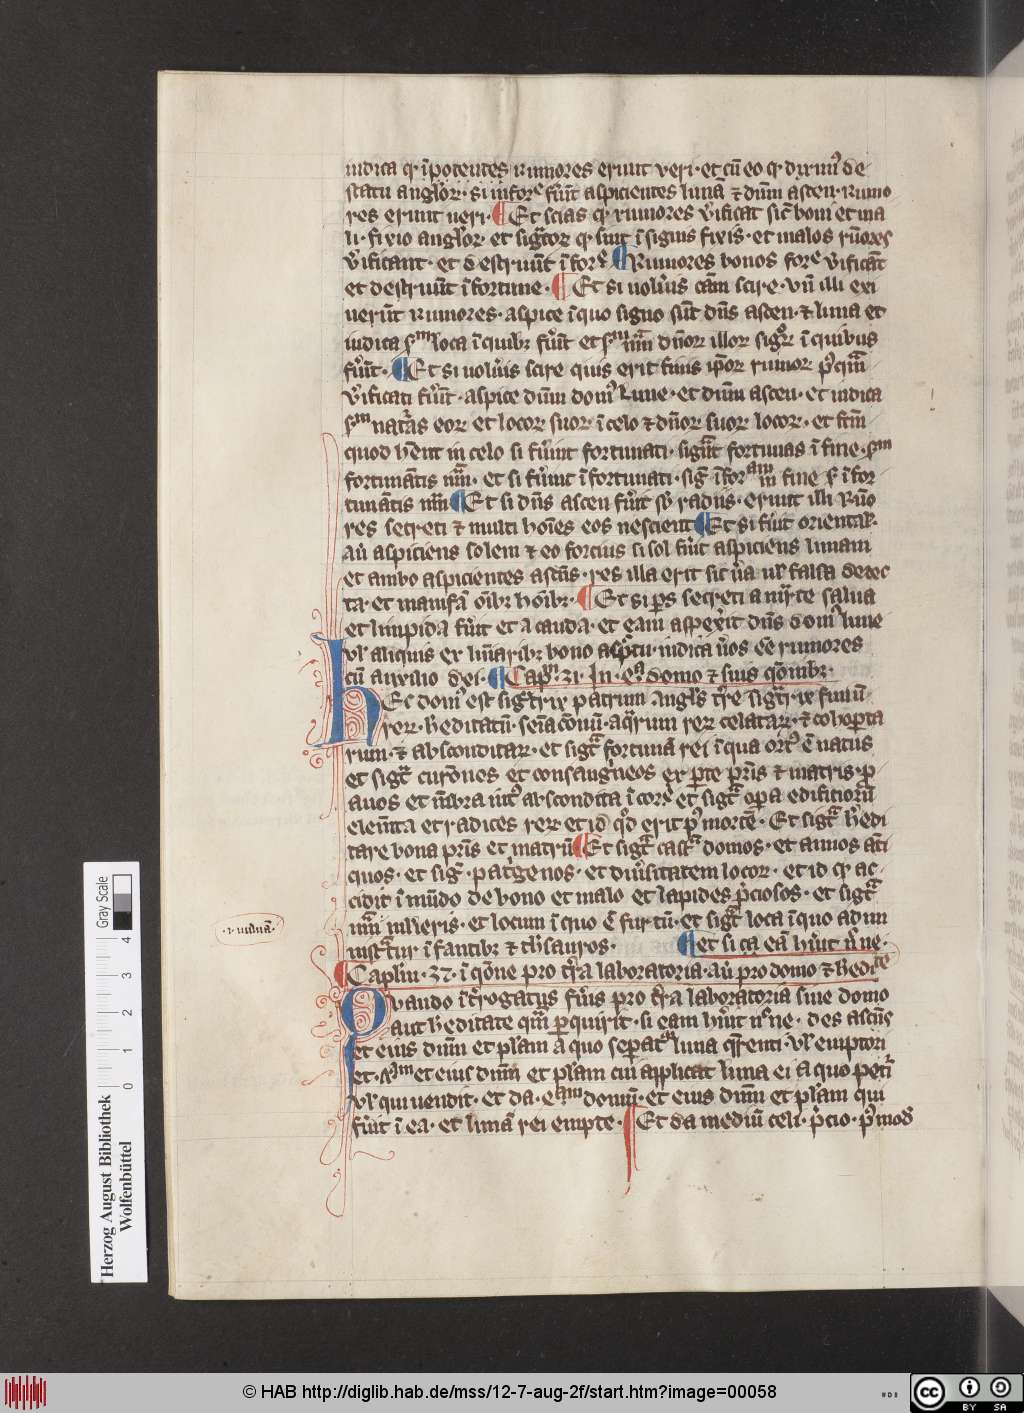 iudica qr īpotentes rumores erunt veri · et cū eo qr dixim9 de
statu anglor · si infore fu̓it aspicientes lunā ⁊ dn̄m ascen · Rumo
res erunt ueri · Et scias qr rumores v̓ificat sic̄ boni et ma
li · fixio anglor et sigtor qr sint ī signis fixis · et malos ru̅ores
v̓ificant · et destruu̅t īfor · Rumores bonos for v̓ificāt
et destruu̅t īfortune · Et si uolu̓is cām scire · vn̄ illi exi
ueru̅t rumores · aspice īquo signo su̅t dn̄s ascen · ⁊ luna et
iudica sm loca īquibz fu̓it et sm nām dn̄or illor signor ī quibus
fu̓it · Et si uolu̓is scire quis erit finis ip̄or rumor pqm̄
v̓ificati fu̓it · aspice dn̄m dom9 lune · et dn̄m ascen · et iudica
sm naturas eor et locor suor ī celo ⁊ dn̄or suor locor · et stm
quod hn̄t in celo si fu̓int fortunati · signt fortunas ī fine · sm
fortunātis nām · et si fu̓int īfortunati · sig īforam in fine ī for
tunātis nām Et si dn̄s ascen fu̓it sb radiis · erunt illi Rūo
res secreti ⁊ multi hoīes eos nescient Et si fu̓it oriental ·
au̅ aspiciens solem ⁊ eo forcius si sol fu̓it aspiciens lunam
et ambo aspicientes ascn̄s · res illa erit sic̄ ūa ul falsa detec
ta · et manifā oībz hoībz · Et si ps secreti a nu̓rte salua
et limpida fu̓it et a cauda · et eam aspexit dn̄s dom9 lune
vl aliquis ex lu̅aribz bono aspctu · iudica ūos eē rumores
cū auxilio dei · Capm · 31 · In · 4a domo ⁊ suis qōnibz ·
Hec dom9 est sigtrix patrum Angls tre sigtrix finiū
rerr · heditatū · seīa cōnū · aqrum rerr celatar · ⁊ cohoperta
rum · ⁊ absconditar · et sigt fortunā rei īqua ort9 ē natus
et sigt curōnes et consaugneos ex pte pris ⁊ matris · p
auos et mēbra int9 abscondita ī core et sigt opa edificiorū
elemta et radices rerr et id qd erit p9 mortē · Et sigt hedi
tare bona pris et matrū Et sigt castra domos · et annos āti
quos · et sig · patgenos · et diu̓sitatem locor · et id qr ac
cidit ī mūdo de bono et malo et lapides pciosos · et sigt
nām mlieris · et locum īquo ē furtū · et sigt loca īquo admi
nistratur · īfantibz ⁊ thsauros · et si ca eā hu̓it ne ·
Caplm · 32 · ī qōne pro tra laboratoria · au̅ pro domo ⁊ hedite
Quando ītrogatus fu̓is pro tra laboratoria siue domo
aut heditate qm̄ pquirit · si eam hu̓it n̄ ne · des ascn̄s
et eius dn̄m et plam a quo sepatr luna qrenti · vl emptori
et · 7am et eius dn̄m et plam cui applicat luna ei a quo petir
vl qui uendit · et da · 4am domū · et eius dn̄m et plam qui
fu̓it ī ea · et lunā rei empte · Et da mediū celi · pcio · p9 mod
Herzog August Bibliothek
Wolfenbüttel
0 1 2 3 4
Gray Scale
© HAB http://diglib.hab.de/mss/12-7-aug-2f/start.htm?image=00058
cc BY SA